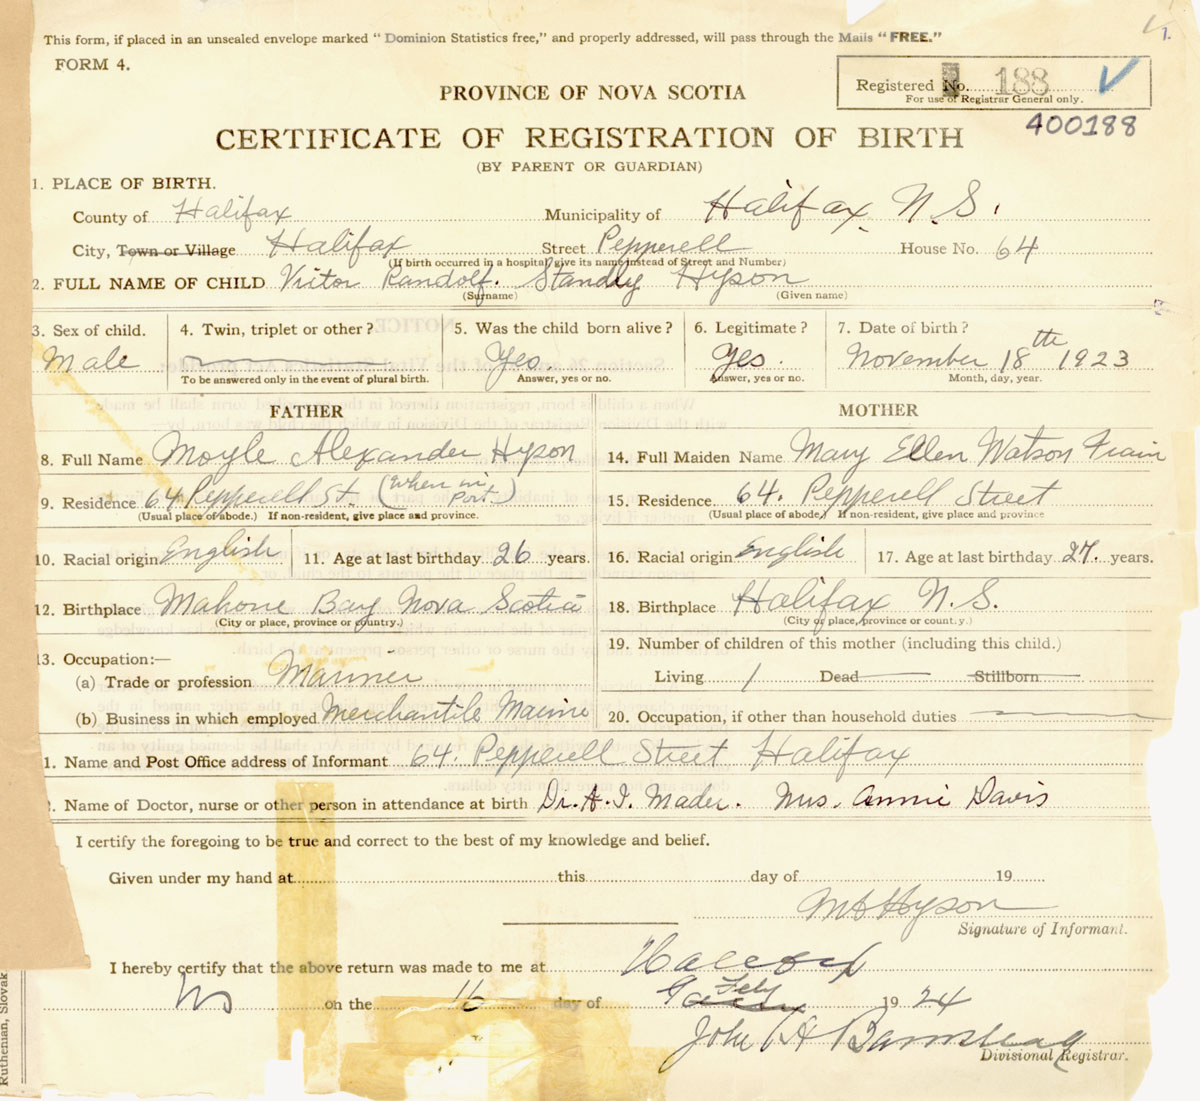 This form, if placed in an unsealed envelope marked "Dominion Statistics free," and properly addressed, will pass through the Mails "FREE."
FORM 4.
Registered No. 188
For use of Registrar General only.
400188
PROVINCE OF NOVA SCOTIA
CERTIFICATE OF REGISTRATION OF BIRTH
(BY PARENT OR GUARDIAN)
1. PLACE OF BIRTH.
County of Halifax Municipality of Halifax N.S.
City, Town or Village Halifax Street Pepperell House No. 64
(If birth occurred in a hospital, give its name instead of Street and Number)
2. FULL NAME OF CHILD Victor Randolf. Standly Hyson
(Surname) (Given name)
3. Sex of child. 4. Twin, triplet or other? 5. Was the child born alive? 6. Legitimate? 7. Date of birth?
Male Yes. Yes. November 18th 1923
To be answered only in the event of plural birth. Answer, yes or no. Answer, yes or no. Month, day, year.
FATHER MOTHER
8. Full Name Moyle Alexander Hyson 14. Full Maiden Name Mary Ellen Watson
9. Residence 64 Pepperell St. (When in Port) 15. Residence 64. Pepperell Street
(Usual place of abode.) If non-resident, give place and province. (Usual place of abode.) If non-resident, give place and province
10. Racial origin English 11. Age at last birthday 26 years. 16. Racial origin English 17. Age at last birthday 27. years.
12. Birthplace Mahone Bay Nova Scotia 18. Birthplace Halifax N.S.
(City or place, province or country.) (City or place, province or country.)
13. Occupation:— 19. Number of children of this mother (including this child.)
(a) Trade or profession Mariner Living 1 Dead Stillborn
(b) Business in which employed Merchantile Marine 20. Occupation, if other than household duties
1. Name and Post Office address of Informant 64. Pepperell Street Halifax
. Name of Doctor, nurse or other person in attendance at birth Dr. A. I. Mader. Mrs. Annie Davis
I certify the foregoing to be true and correct to the best of my knowledge and belief.
Given under my hand at this day of 19
M A Hyson
Signature of Informant.
I hereby certify that the above return was made to me at Halifax
NS on the 16 day of Feby 1924
John A Barnstead
Divisional Registrar.
Ruthenian, Slovak